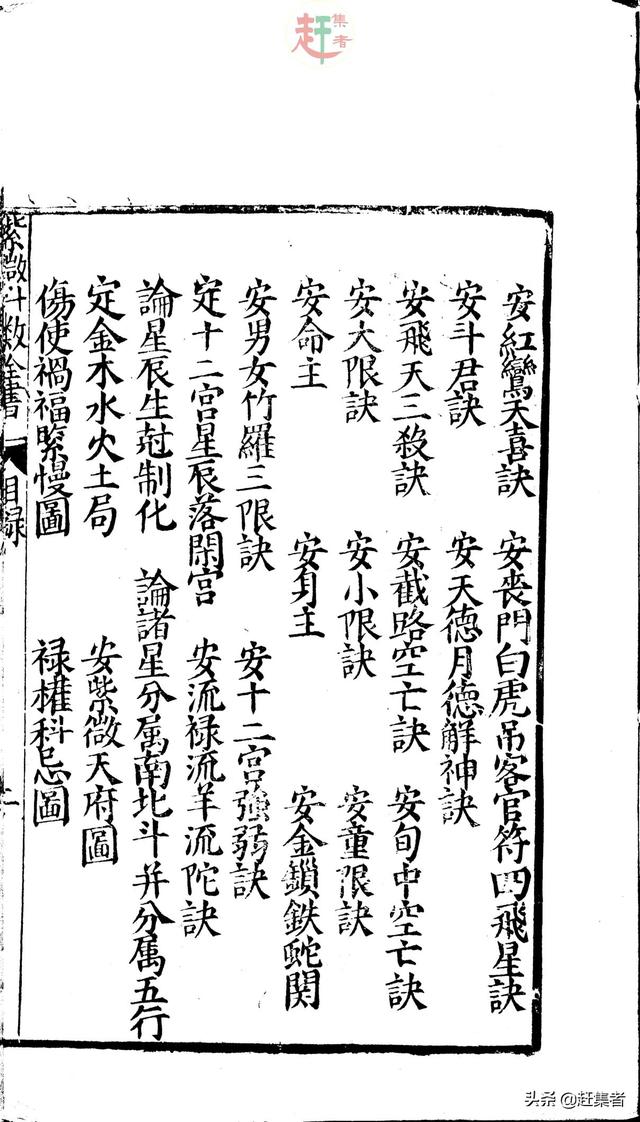 赶集者
安紅鸞天喜訣 安丧門白虎吊客官符四飛星訣
安斗君訣 安天德月德解神訣
安飛天三殺訣 安截路空亡訣 安旬中空亡訣
安大限訣 安小限訣 安童限訣
安命主 安身主 安金鎖鉄蛇関
安男女竹羅三限訣 安十二宫強弱訣
定十二宫星辰落閑宫 安流禄流羊流陀訣
論星辰生尅制化 論諸星分属南北斗并分属五行
定金木水火土局 安紫微天府圖
傷使禍福緊慢圖 禄權科忌圖
紫微斗数全書 目録
头条 @赶集者